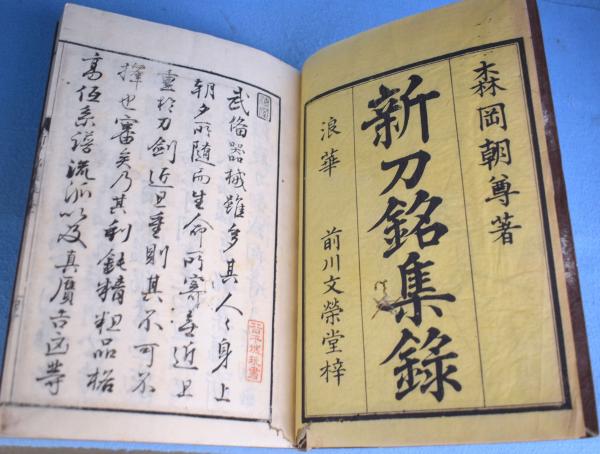 森岡朝尊著
新刀銘集録
浪華 前川文榮堂梓
武備器械雖多其人々身上
朝夕所随而生命所寄莫近且
重於刀劍近且重則其不可不
擇也審矣乃其利鈍精粗品格
高伍系譜流派以及真贋吉凶等